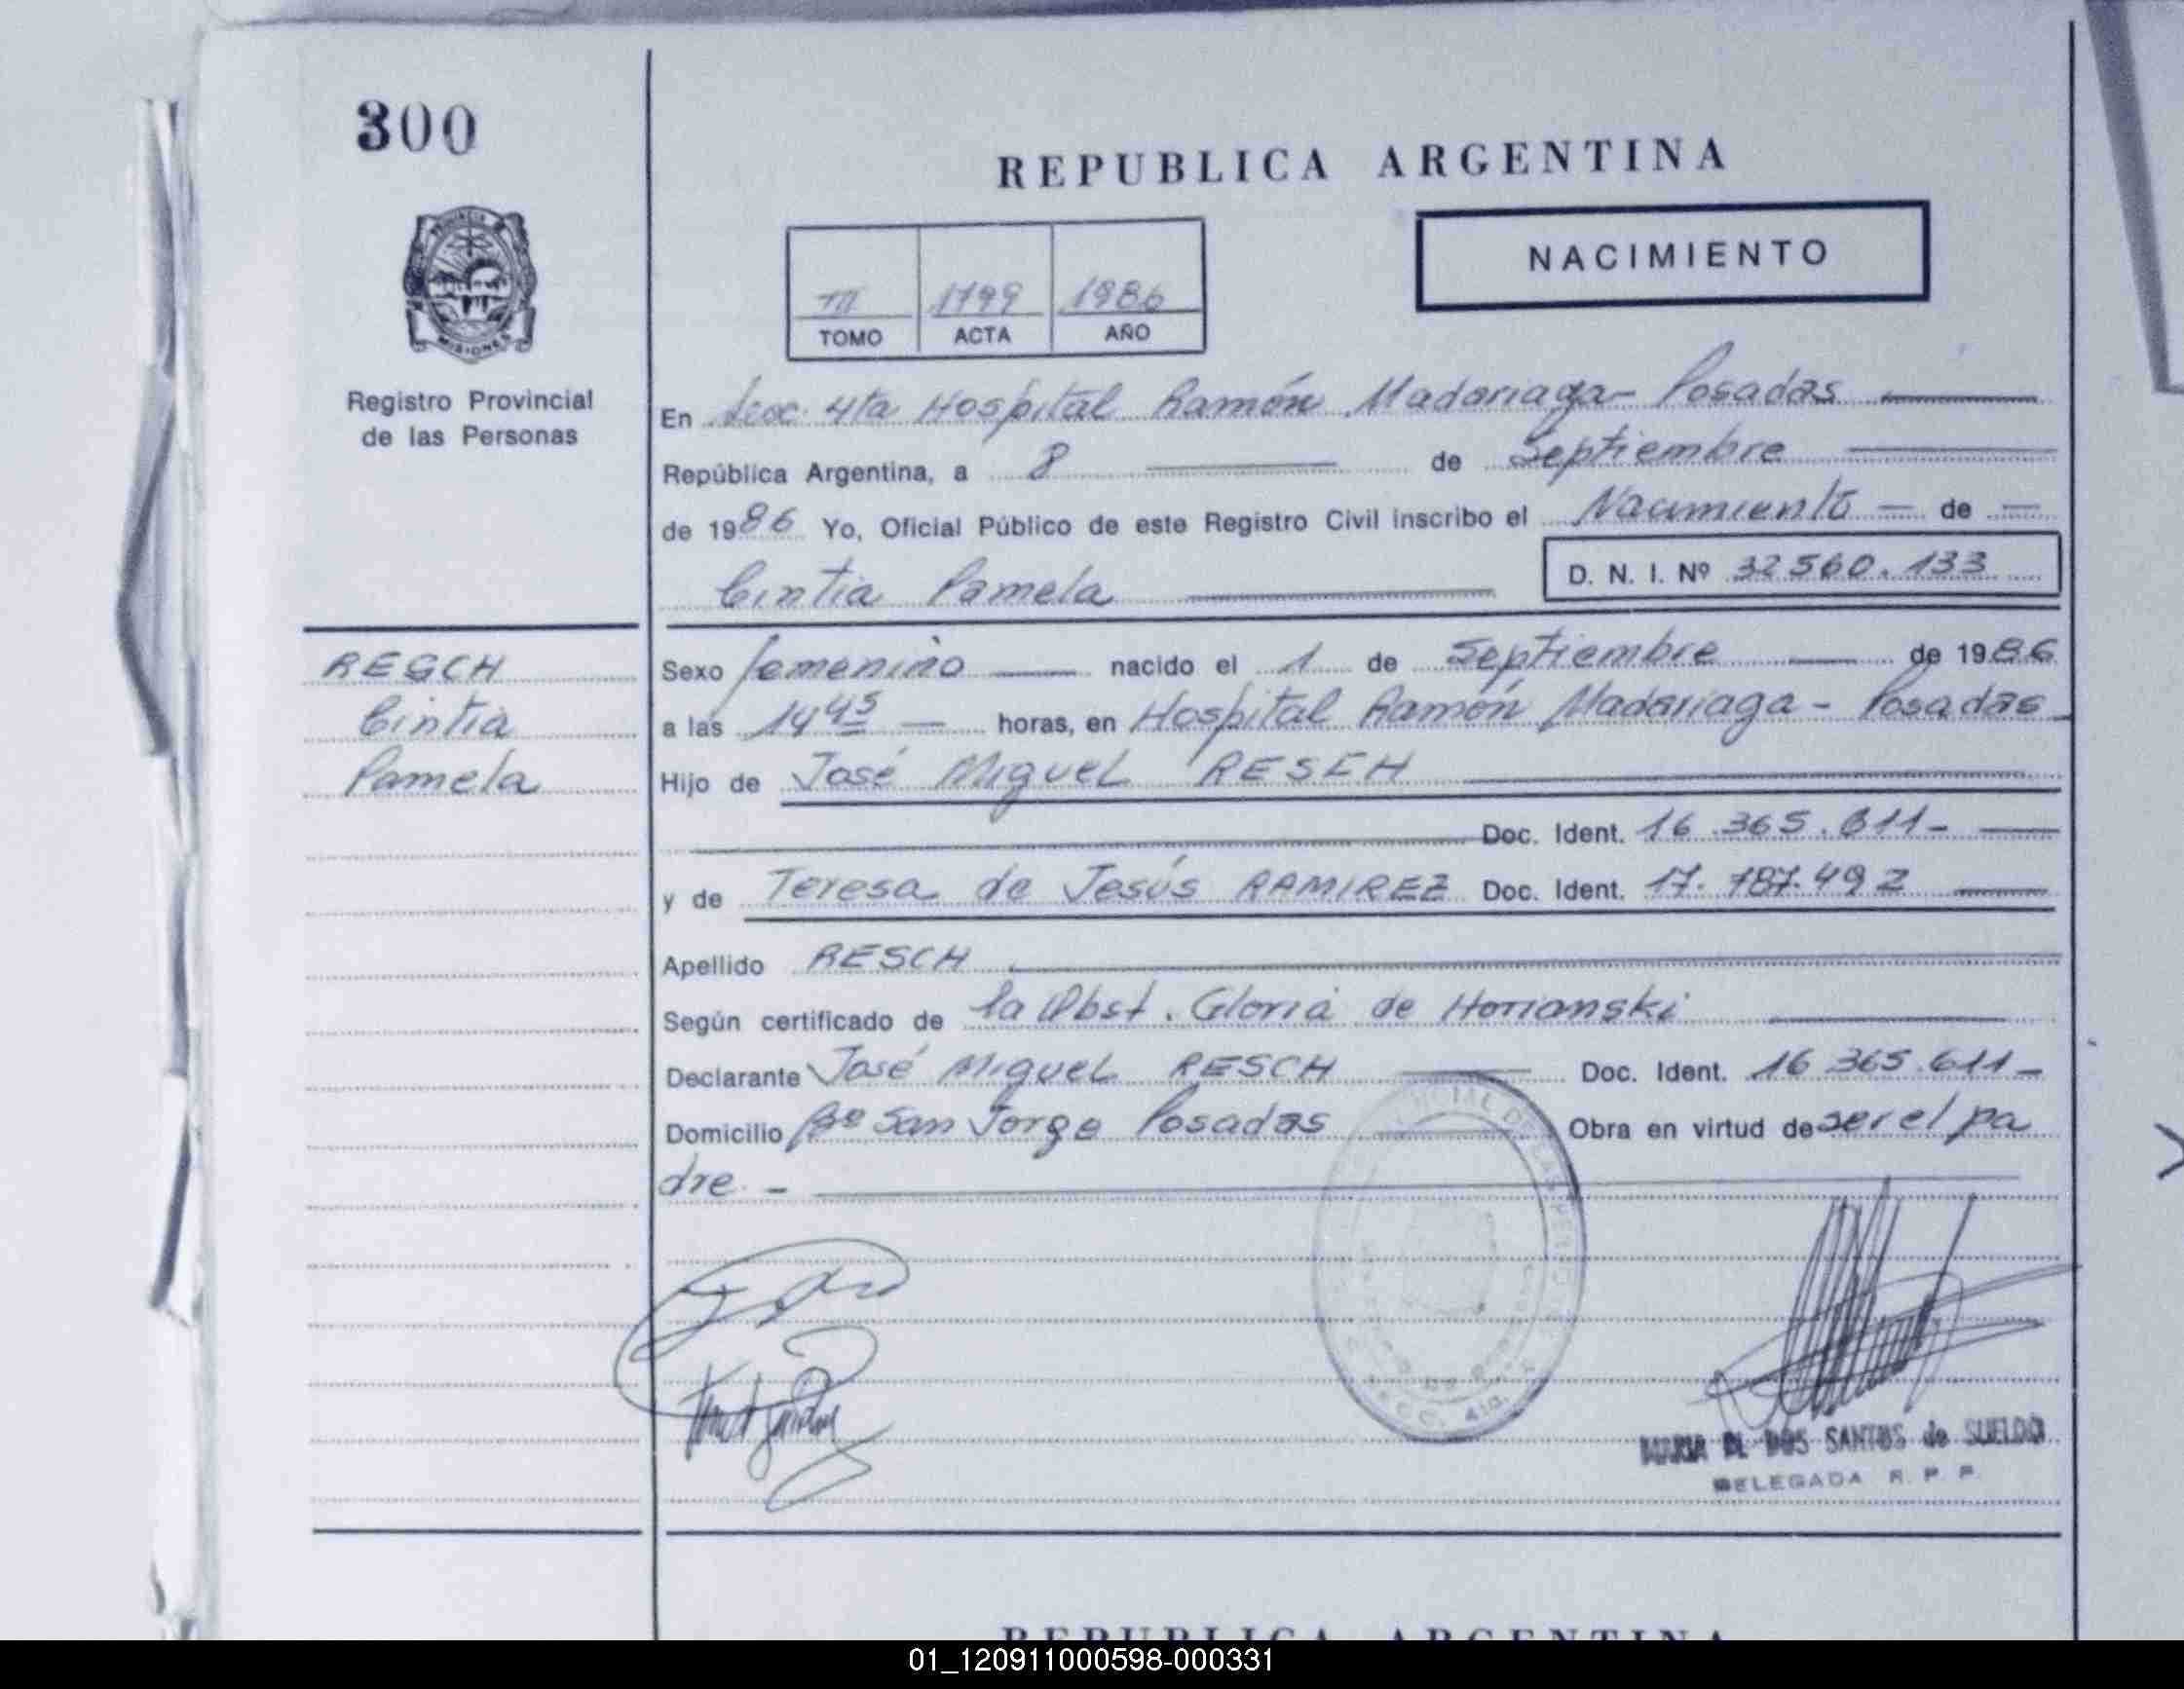 300
REPUBLICA ARGENTINA
NACIMIENTO
III 1799 1986
TOMO ACTA AÑO
PROVINCIA
MISIONES
Registro Provincial
de las Personas
En Secc. 4ta Hospital Ramón Madariaga- Posadas
República Argentina, a 8 de Septiembre
de 1986 Yo, Oficial Público de este Registro Civil inscribo el Nacimiento - de -
Cintia Pamela D. N. I. Nº 32560.133
RESCH
Cintia
Pamela
Sexo femenino nacido el 1 de Septiembre de 1986
a las 14 45 - horas, en Hospital Ramón Madariaga - Posadas
Hijo de José Miguel RESCH
Doc. Ident. 16.365.611-
y de Teresa de Jesús RAMIREZ Doc. Ident. 17.787.492
Apellido RESCH
Según certificado de la Obst. Gloria de Horianski
Declarante José Miguel RESCH Doc. Ident. 16 365.611-
Domicilio Bº San Jorge Posadas Obra en virtud de ser el pa
dre. -
SECC. 4ta.
MARIA DOS SANTOS de SUELDO
DELEGADA R. P. P.
REPUBLICA ARGENTINA
01_120911000598-000331